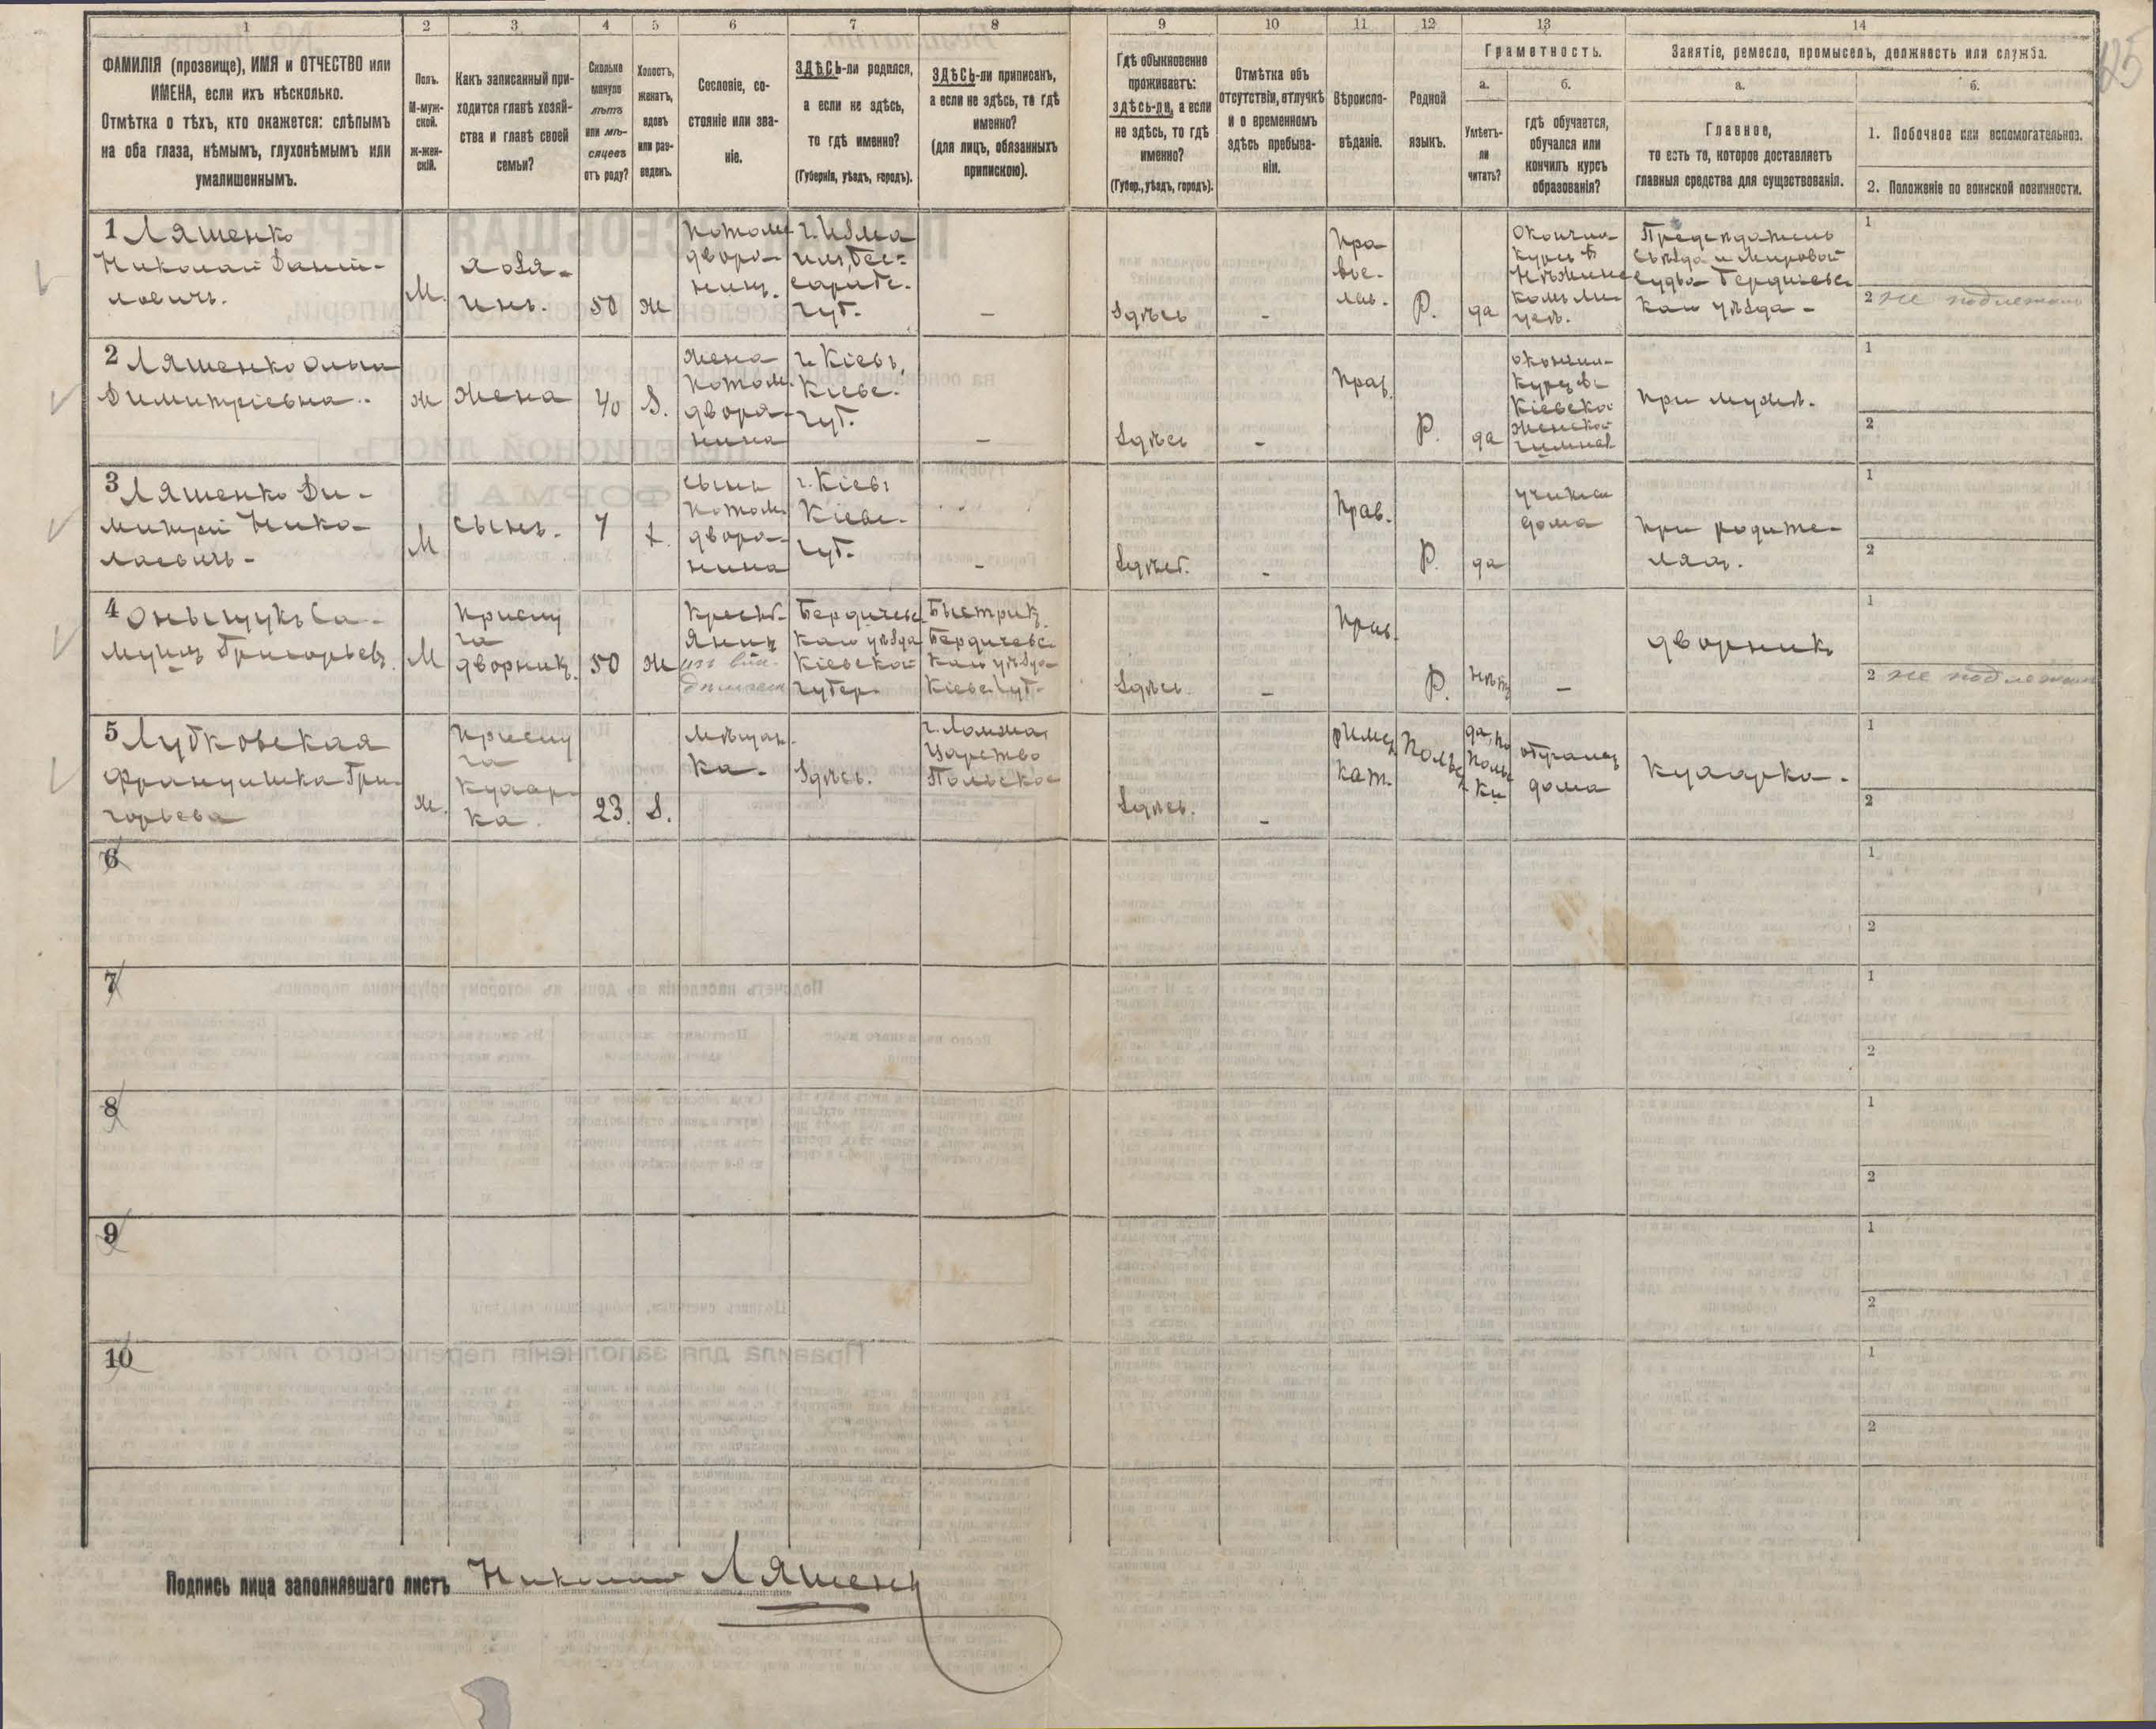 1
2
3
4
5
6
7
8
9
10
11
12
13
14
ФАМИЛІЯ (прозвище), ИМЯ и ОТЧЕСТВО или
ИМЕНА, если ихъ нѣсколько.
Отмѣтка о тѣхъ, кто окажется: слѣпымъ
на оба глаза, нѣмымъ, глухонѣмымъ или
умалишеннымъ.
Полъ.
М-муж-
ской.
Ж-жен-
скій.
Какъ записанный при-
ходится главѣ хозяй-
ства и главѣ своей
семьи?
Сколько
минуло
лѣтъ
или мѣ-
сяцевъ
отъ роду?
Холостъ,
женатъ,
вдовъ
или раз-
веденъ.
Сословіе, со-
стояніе или зва-
ніе.
ЗДѢСЬ-ли родился,
а если не здѣсь,
то гдѣ именно?
(Губернія, уѣздъ, городъ).
ЗДѢСЬ-ли приписанъ,
а если не здѣсь, то гдѣ
именно?
(для лицъ, обязанныхъ
припискою).
Гдѣ обыкновенно
проживаетъ:
здѣсь-ли, а если
не здѣсь, то гдѣ
именно?
(Губер., уѣздъ, городъ).
Отмѣтка объ
отсутствіи, отлучкѣ
и о временномъ
здѣсь пребыва-
ніи.
Вѣроиспо-
вѣданіе.
Родной
языкъ.
Грамотность.
а.
Умѣетъ-
ли
читать?
б.
гдѣ обучается,
обучался или
кончилъ курсъ
образованія?
Занятіе, ремесло, промыселъ, должность или служба.
а.
Главное,
то есть то, которое доставляетъ
главныя средства для существованія.
б.
1. Побочное или вспомогательное.
2. Положеніе по воинской повинности.
1 Ляшенко
Николай Дани-
ловичъ.
М.
хозя-
инъ.
50
ж
потом.
дворя-
нинъ.
г. Изма
илъ, Бес-
сарабс.
губ.
–
Здѣсь
–
Пра
вос-
лав.
Р.
да
Окончил
курсъ въ
Нѣжинс
комъ Ли
цеѣ.
Предсѣдатель
Съѣзда и Мировой
Судья Бердичевс
каго уѣзда -
1
2 не подлежитъ
2 Ляшенко Ольга
Димитріевна.
ж
жена
40
З.
жена
потом.
дворя-
нина
г. Кіевъ,
Кіевс.
губ.
–
Здѣсь
–
Прав.
Р.
да
окончил
курсъ въ
Кіевской
женской
гимназ.
при мужѣ.
1
2
3 Ляшенко Ди-
митрій Нико-
лаевичъ -
М
сынъ.
7
х.
сынъ
потом.
дворя-
нина
г. Кіевъ
Кіевс.
губ.
–
Здѣсь.
–
Прав.
Р.
да
учится
дома
при родите-
ляхъ.
1
2
4 Оныщукъ Са-
муилъ Григорьев.
М
Прислу
га
дворникъ.
50
ж
Кресть
янинъ
Бердичевс
каго уѣзда
Кіевской
губер.
Быстрик,
Бердичевс.
каго уѣзда
Кіевс. губ.
Здѣсь.
–
Прав.
Р.
нѣтъ
–
дворникъ
1
2 не подлежитъ
5 Лубковская
Францишка Гри-
горьева
ж.
Прислу
га
Кухар-
ка.
23.
З.
Мѣщан-
ка.
Здѣсь.
г. Ломжа,
Царство
Польское
Здѣсь.
–
римск
кат.
Польс
да, по
Польс
ки
обучалась
дома
Кухарка.
1
2
6
1
2
7
1
2
8
1
2
9
1
2
10
1
2
Подпись лица заполнявшаго листъ Николай Ляшенко